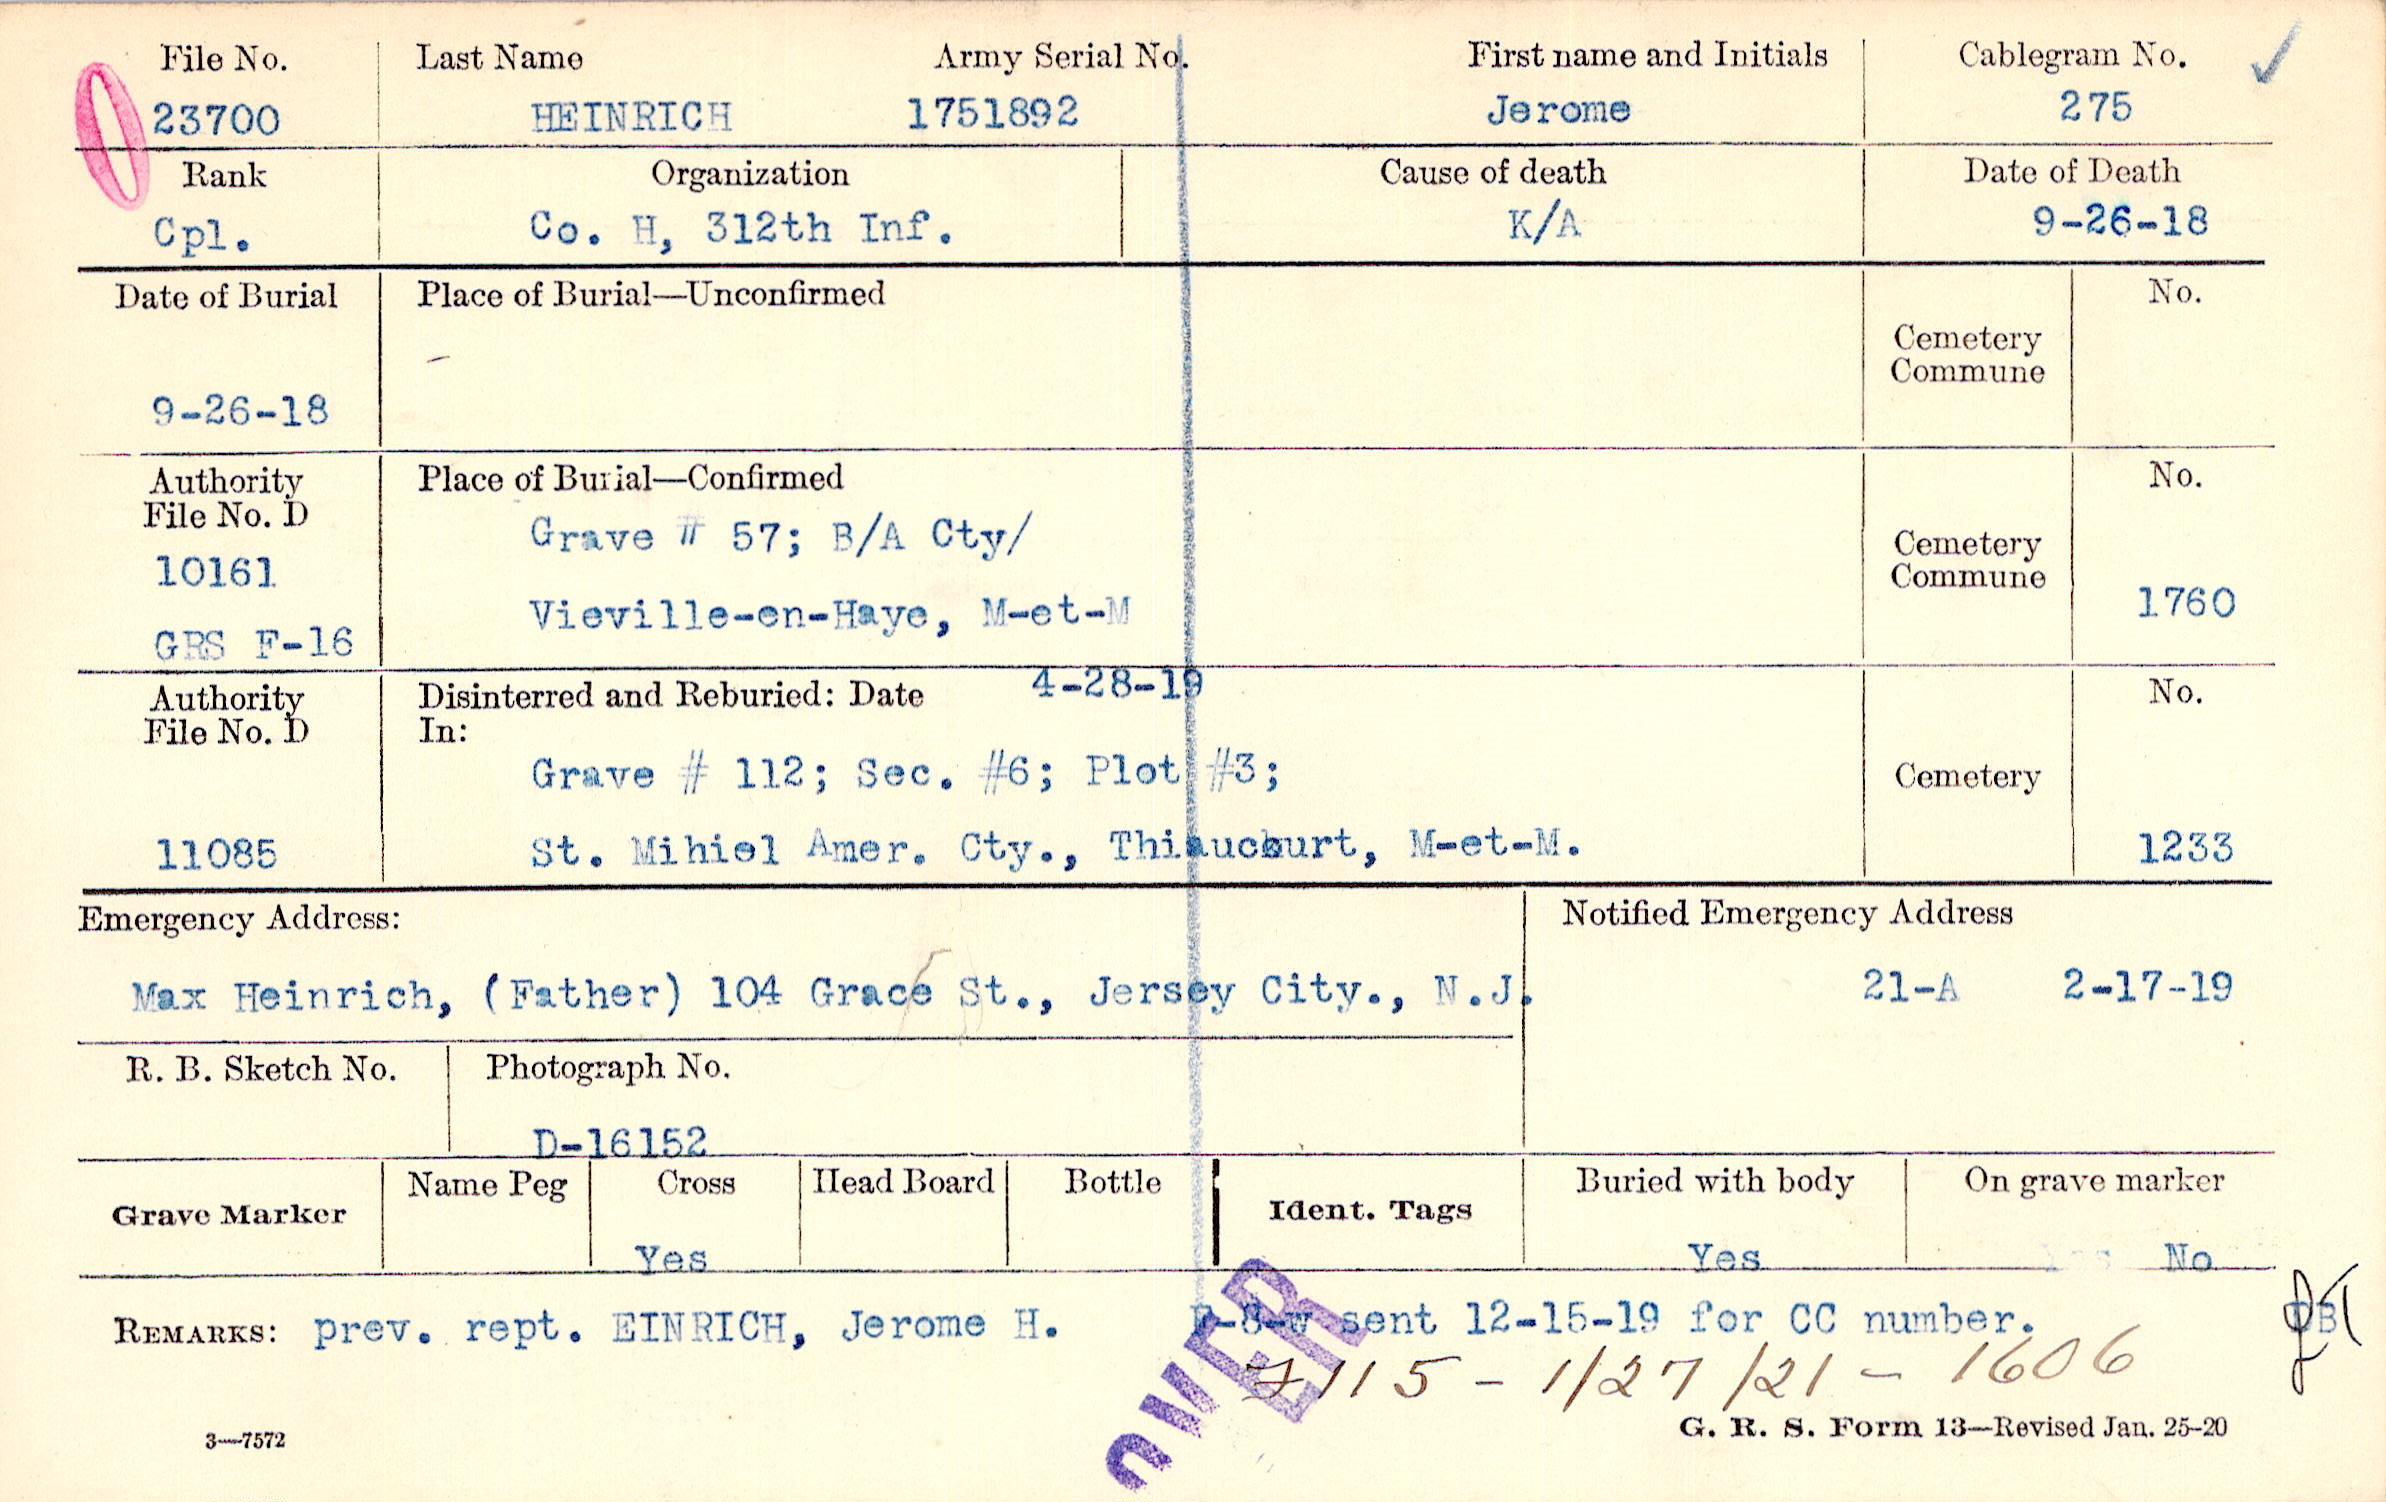 File No. Last Name Army Serial No. First name and Initials Cablegram No.
23700 HEINRICH 1751892 Jerome 275
Rank Organization Cause of death Date of Death
Cpl. Co. H, 312th Inf. K/A 9-26-18
Date of Burial Place of Burial—Unconfirmed No.
Cemetery
Commune
9-26-18
Authority Place of Burial—Confirmed No.
File No. D
Grave # 57; B/A Cty/
Cemetery
Commune
10161
Vieville-en-Haye, M-et-M 1760
GRS F-16
Authority Disinterred and Reburied: Date 4-28-19 No.
File No. D In:
Grave # 112; Sec. #6; Plot #3; Cemetery
11085 St. Mihiel Amer. Cty., Thiaucourt, M-et-M. 1233
Emergency Address: Notified Emergency Address
Max Heinrich, (Father) 104 Grace St., Jersey City., N.J. 21-A 2-17-19
R. B. Sketch No. Photograph No.
D-16152
Grave Marker Name Peg Cross Head Board Bottle Ident. Tags Buried with body On grave marker
Yes Yes No
REMARKS: prev. rept. EINRICH, Jerome H. sent 12-15-19 for CC number.
OVER
7115 - 1/27/21 - 1606
3—7572
G. R. S. Form 13—Revised Jan. 25-20